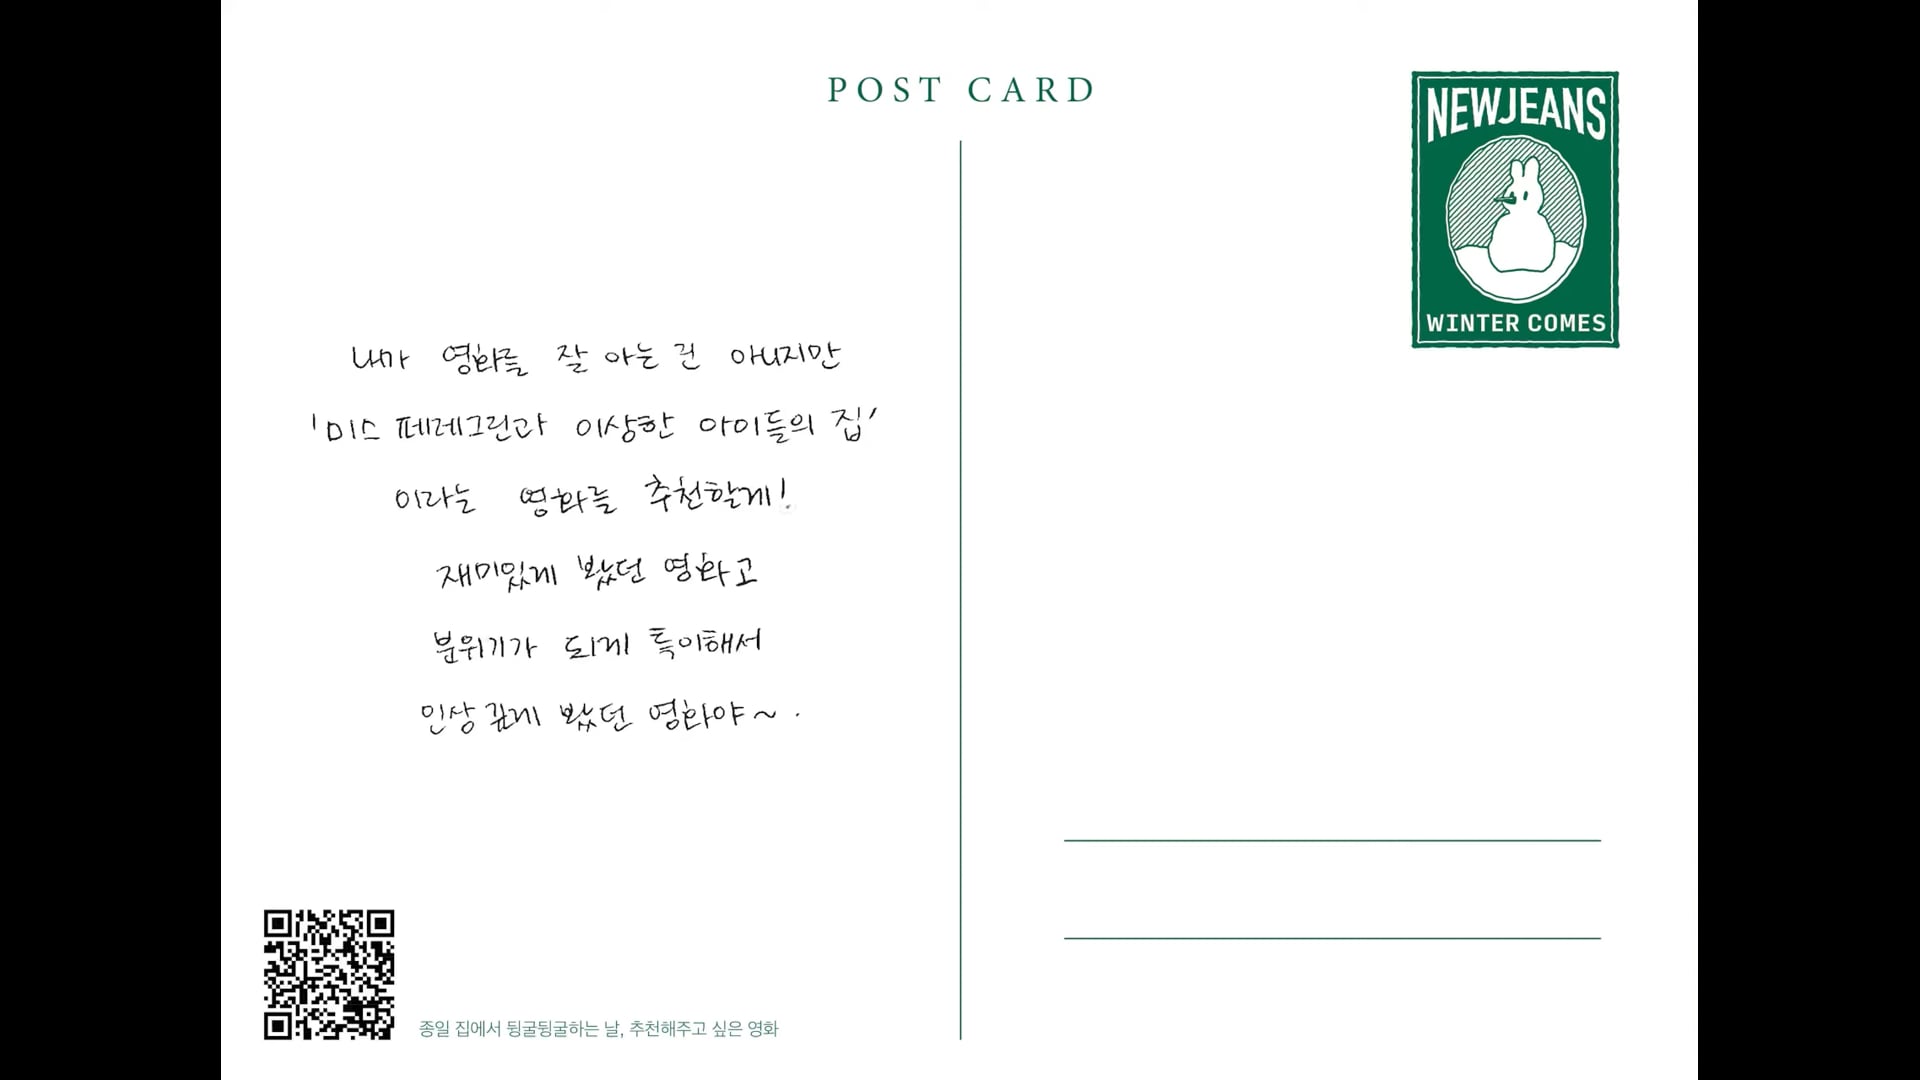 POST CARD
NEWJEANS
WINTER COMES
내가 영화를 잘 아는 건 아니지만
'미스 페레그린과 이상한 아이들의 집'
이라는 영화를 추천할게!
재미있게 봤던 영화고
분위기가 되게 특이해서
인상 깊게 봤던 영화야~.
종일 집에서 뒹굴뒹굴하는 날, 추천해주고 싶은 영화